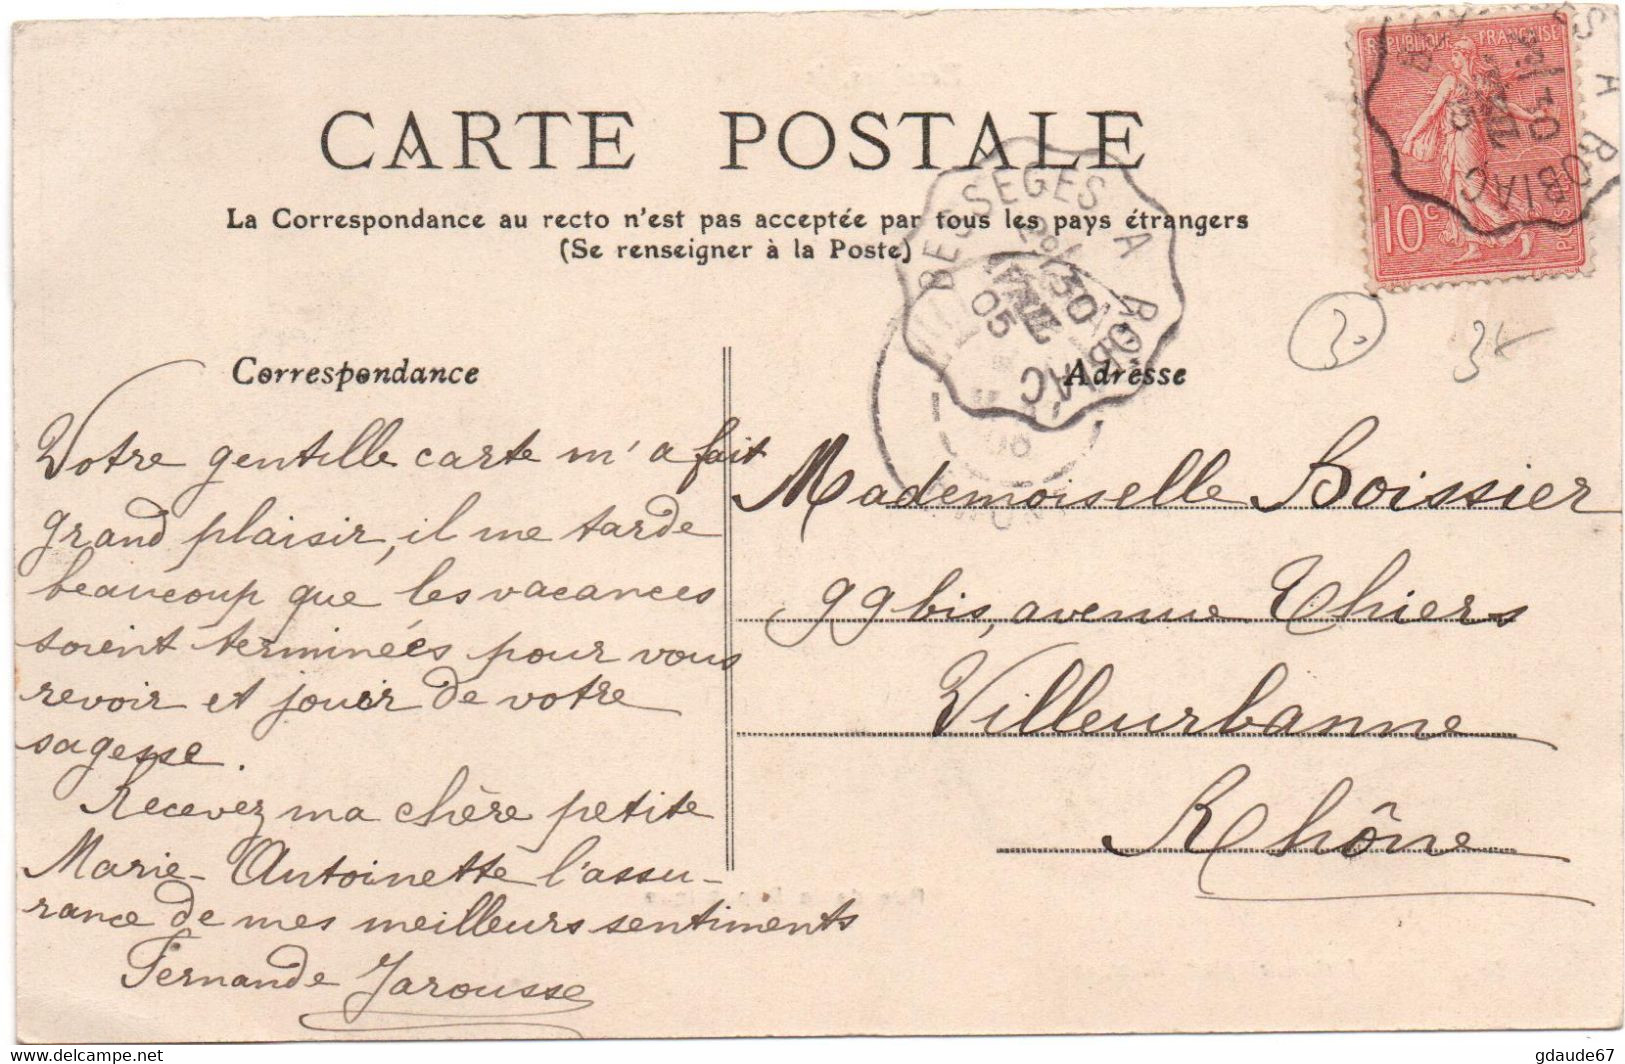 CARTE POSTALE
La Correspondance au recto n'est pas acceptée par tous les pays étrangers
(Se renseigner à la Poste)
REPUBLIQUE FRANÇAISE
10 c
BESSEGES A ROBIAC
30
05
BESSEGES A ROBIAC
3
3
Correspondance
Votre gentille carte m'a fait
grand plaisir, il me tarde
beaucoup que les vacances
soient terminées pour vous
revoir et jouir de votre
sagesse.
Recevez ma chère petite
Marie-Antoinette l'assu-
rance de mes meilleurs sentiments
Fernande Jarousse
Adresse
Mademoiselle Boissier
99 bis, avenue Thiers
Villeurbanne
Rhône
www.delcampe.net
gdaude67